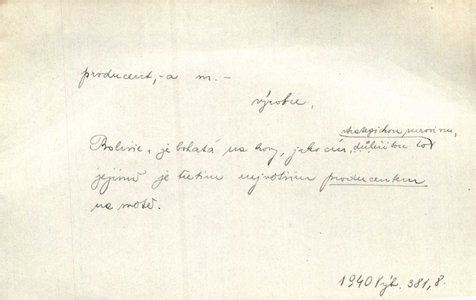 producent, -a m. –
výrobce,
strategickou surovinu,
Bolivie, je bohatá na kovy, jako cín, důležitou
jejímž je třetím největším producentem
na světě.
1940 Výb. 381, 8.